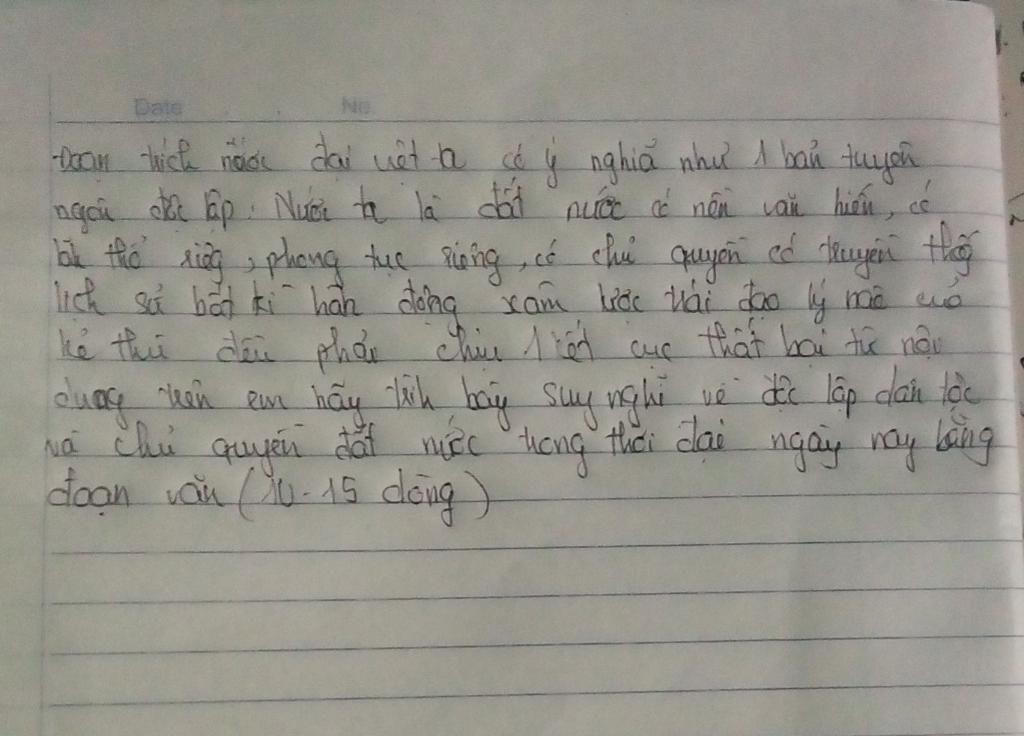 Date No.
Đoạn trích nước đại việt ta có ý nghĩa như 1 bản tuyên
ngôn độc lập. Nước ta là đất nước có nền văn hiến, có
bờ thổ riêng, phong tục riêng, có chủ quyền có truyền thống
lịch sử bất kì hành động xâm lược trái đạo lý nào của
kẻ thù đều phải chịu 1 kết cục thất bại từ nội
dung trên em hãy trình bày suy nghĩ về độc lập dân tộc
và chủ quyền đất nước trong thời đại ngày nay bằng
đoạn văn (10-15 dòng)